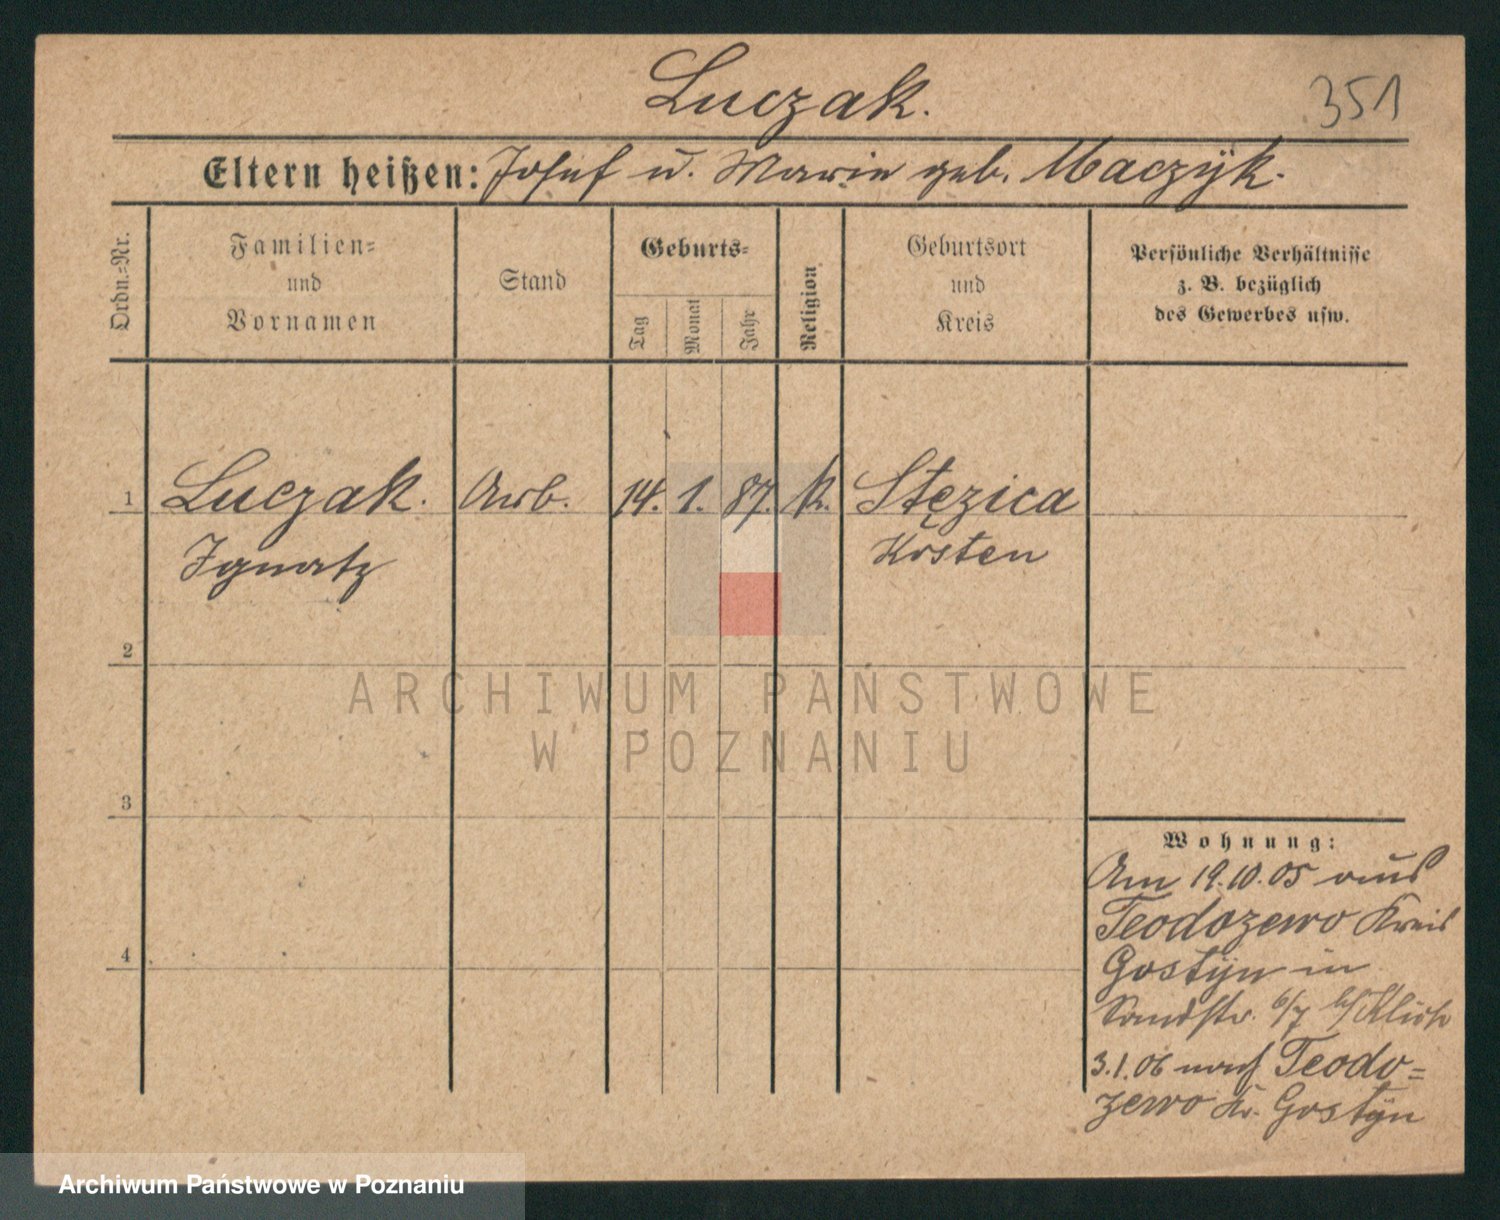 Luczak.
351
Eltern heißen: Josef u. Marie geb. Maczÿk.
Ordn.=Nr.
Familien=
und
Vornamen
Stand
Geburts=
Tag
Monat
Jahr
Religion
Geburtsort
und
Kreis
Persönliche Verhältnisse
z. B. bezüglich
des Gewerbes usw.
1 Luczak. Arb. 14. 1. 87. k. Stęzica
Ignatz Kosten
2
ARCHIWUM PAŃSTWOWE
W POZNANIU
3
Wohnung:
Am 19.10.05 aus
Teodozewo Kreis
4
Gostÿn in
Sandstr. 6/7 b/Klich
3.1.06 nach Teodo=
zewo Kr. Gostÿn
Archiwum Państwowe w Poznaniu